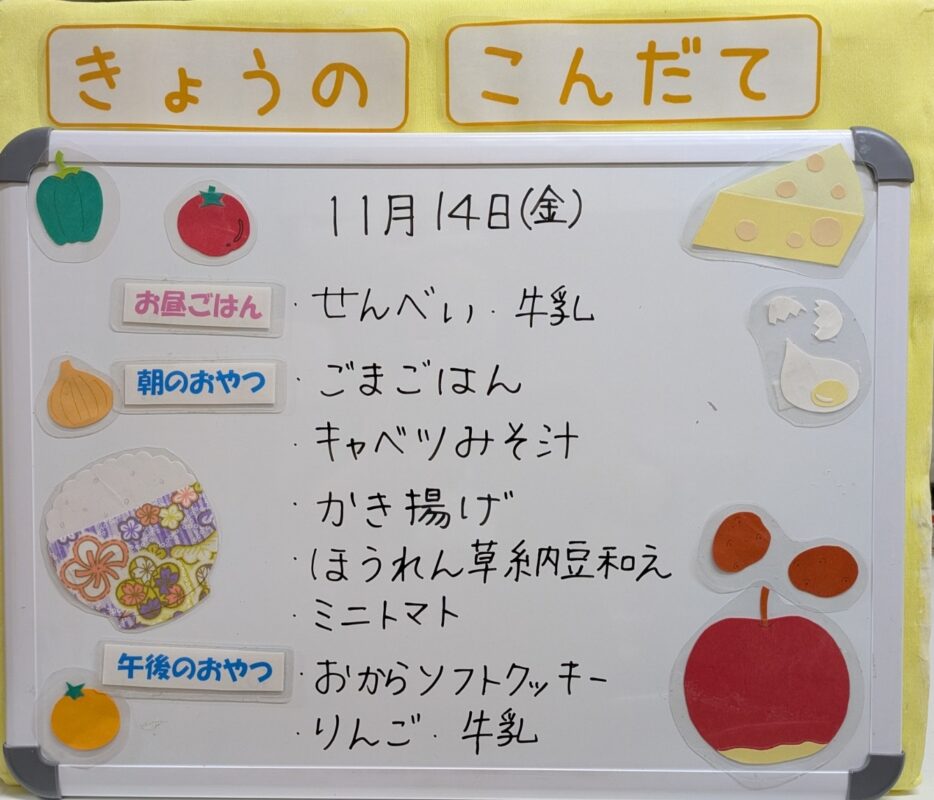 きょうの こんだて
11月14日(金)
お昼ごはん ・せんべい・牛乳
朝のおやつ ・ごまごはん
・キャベツみそ汁
・かき揚げ
・ほうれん草納豆和え
・ミニトマト
午後のおやつ ・おからソフトクッキー
・りんご・牛乳